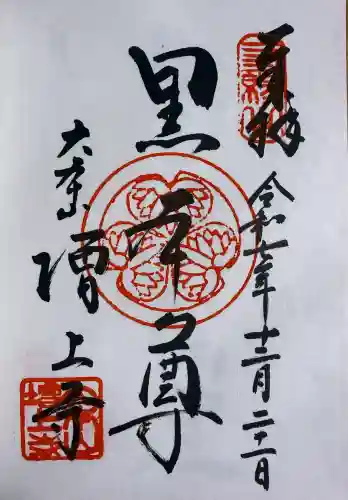 奉拝
令和七年十二月二十一日
黒本尊
大本山
増上寺